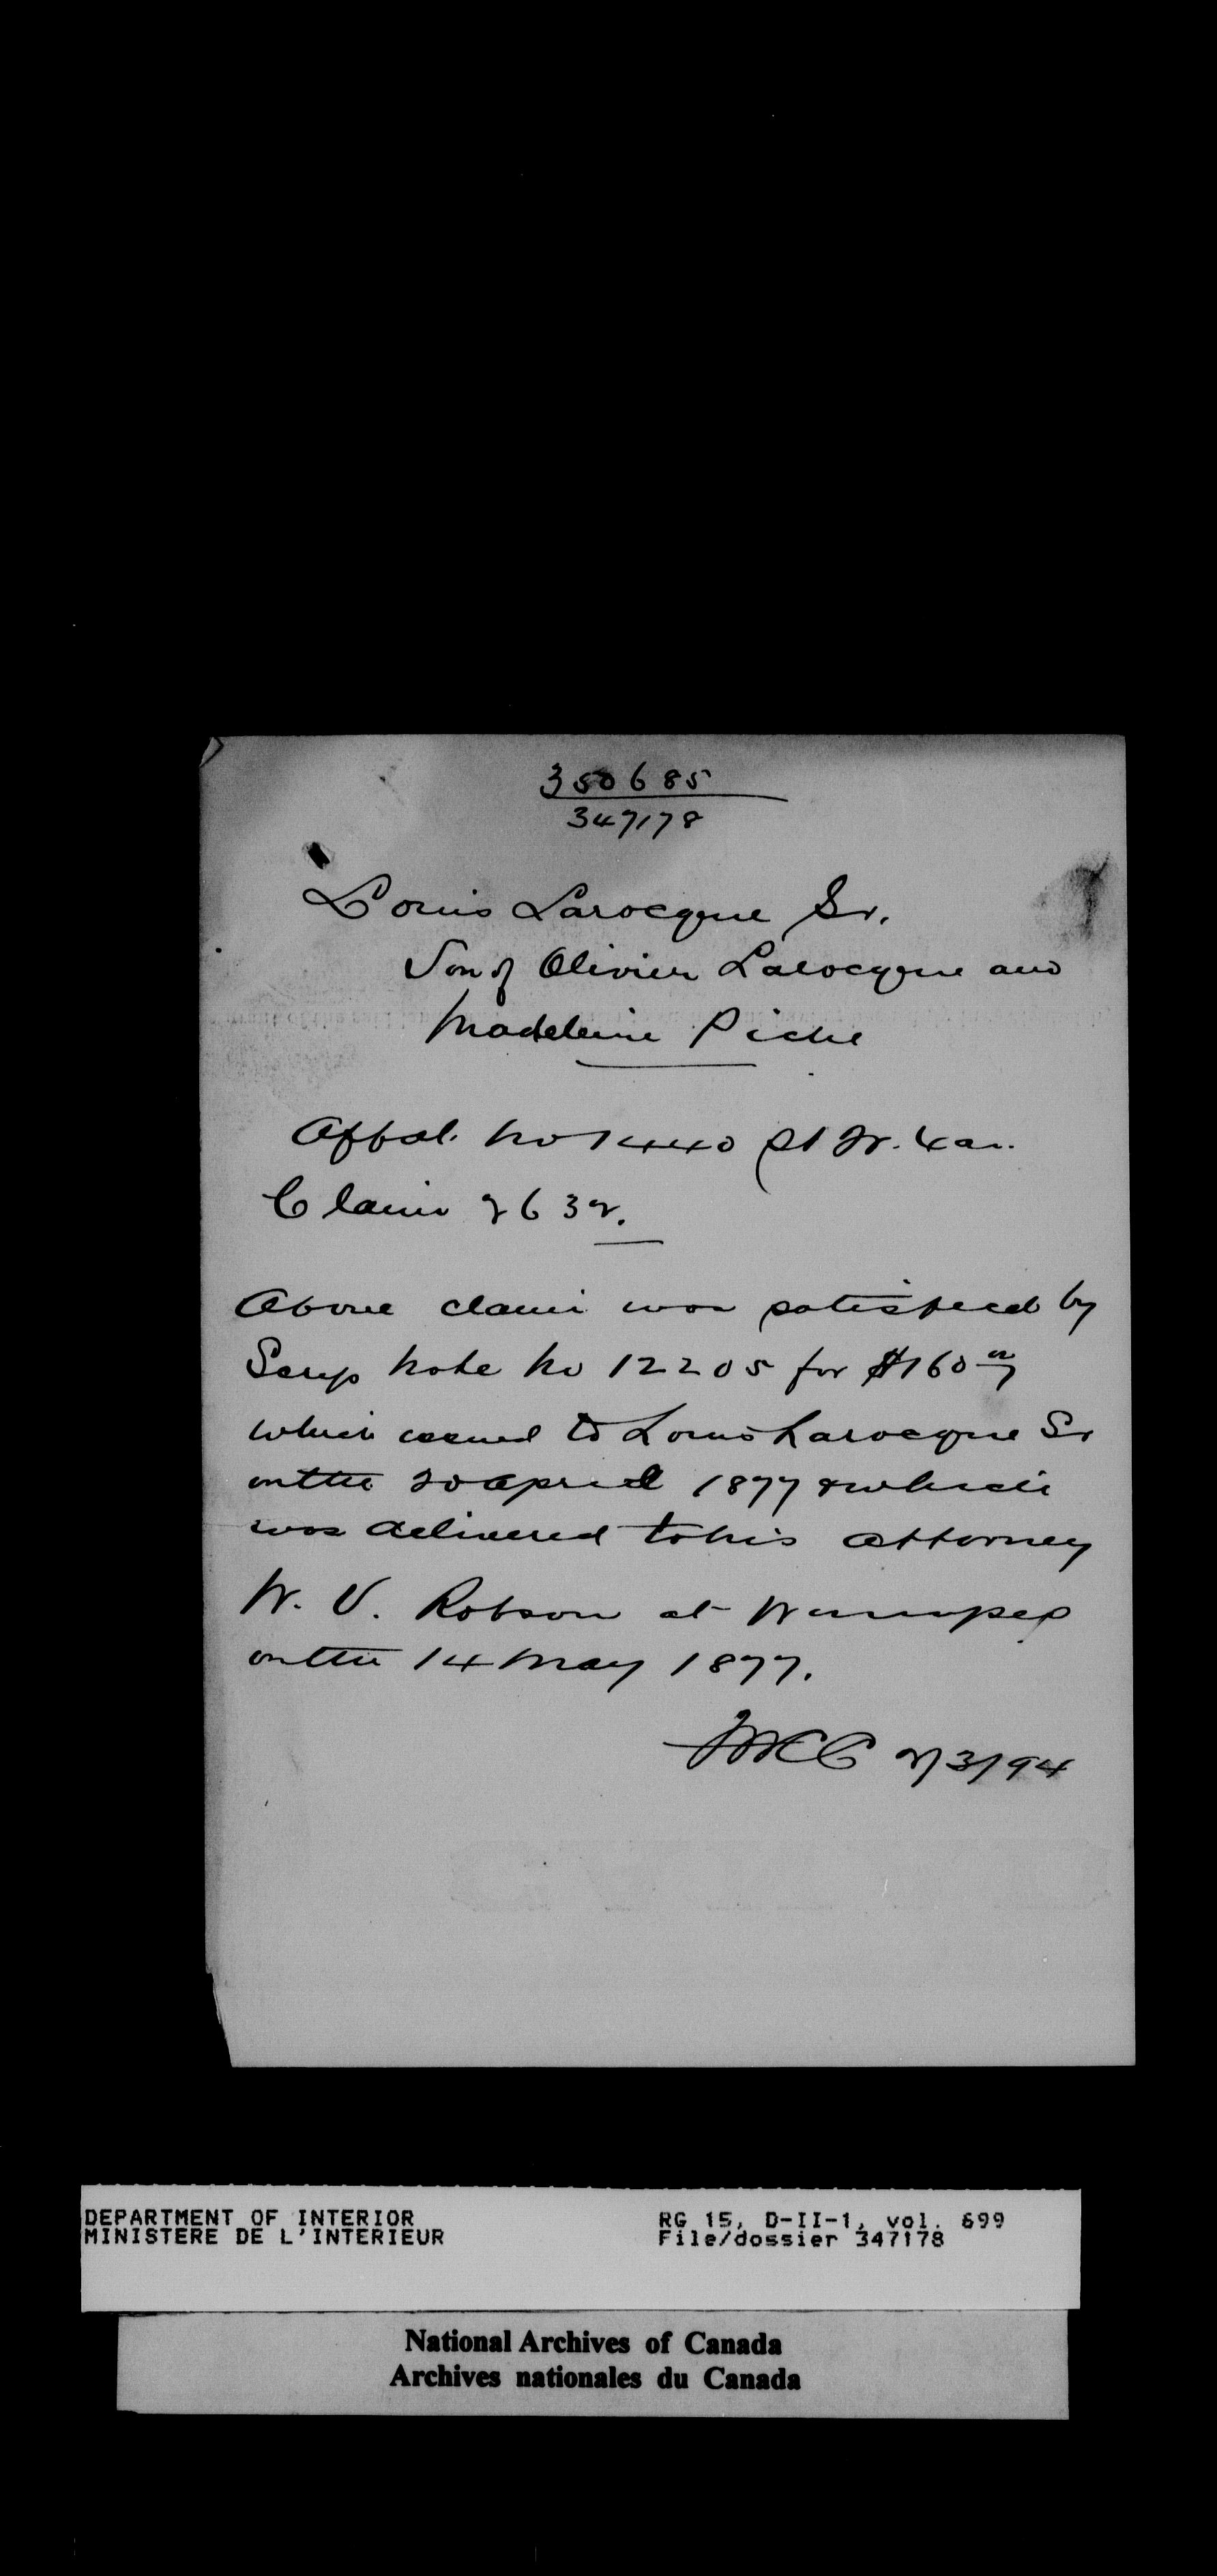 350685
347178
Louis Larocque Sr.
Son of Olivier Larocque and
Madeleine Piche
Affid. No 1440 St Fr. Xav.
Claim 2632.
Above claim was satisfied by
Scrip Note No 12205 for $160 00/
which issued to Louis Larocque Sr
on the 20 April 1877 & which
was delivered to his attorney
W. V. Robson at Winnipeg
on the 14 May 1877.
2/3/94
DEPARTMENT OF INTERIOR
MINISTERE DE L'INTERIEUR
RG 15, D-II-1, vol. 699
File/dossier 347178
National Archives of Canada
Archives nationales du Canada